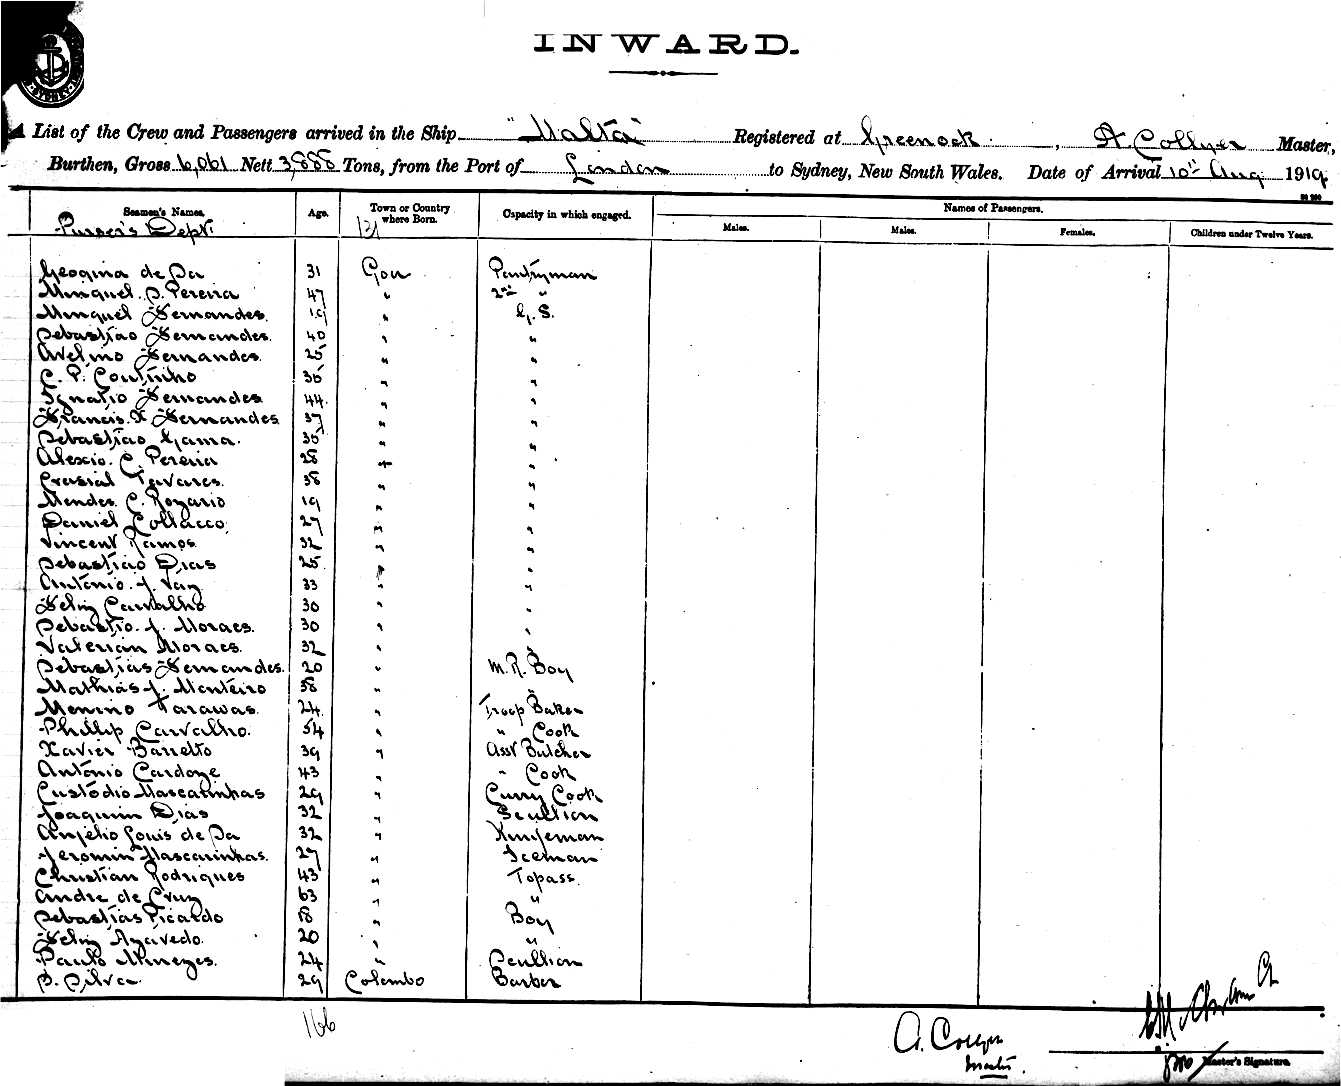 SYDNEY
INWARD.
A List of the Crew and Passengers arrived in the Ship "Malta" Registered at Greenock, A. Collyer Master,
Burthen, Gross 6,061 Nett 3,888 Tons, from the Port of London to Sydney, New South Wales. Date of Arrival 10th Aug 1919
Seamen's Names. Age. Town or Country where Born. Capacity in which engaged. Names of Passengers.
Males. Males. Females. Children under Twelve Years.
Purser's Dept. 131
Georgina de Sa 31 Goa Pantryman
Minquel S. Pereira 47 " 2nd "
Minquel Fernandes. 19 " G. S.
Sebastiao Fernandes. 40 " "
Avelino Fernandes. 25 " "
C. P. Coutinho 35 " "
Ignatio Fernandes 44. " "
Francis. X Fernandes 37 " "
Sebastiao Gama. 35 " "
Alexio. C. Pereria 28 " "
Crasial Tavares. 38 " "
Mendes. C. Rozario 19 " "
Daniel Collacco 27 " "
Vincent Ramos 32 " "
Sebastiao Dias 25 " "
Antonio. J. Vaz 33 " "
Felix Carvalho 30 " "
Sebastio. J. Moraes. 30 " "
Valerian Moraes. 32 " "
Sebastias Fernandes. 20 " M. R. Boy
Mathias J. Monteiro 58 " "
Menino Tarawas. 24. " Troop Baker
Phillip Carvalho. 54 " " Cook
Xavier Barretto 39 " Asst Butcher
Antonio Cardoze 43 " " Cook
Custodio Mascarinhas 29 " Curry Cook
Joaquim Dias 32 " Scullion
Anjelio Louis de Sa 32 " Knifeman
Jeromin Mascarinhas. 27 " Iceman
Christian Rodriques 43 " Topass.
Andre de Cruz 63 " "
Sebastias Picardo 18 " Boy
Felix Azavedo. 20 " "
Paulo Minezes. 24 " Scullion
S. Silva. 29 Colombo Barber
166
A. Collyer
Master.
pro Master's Signature.